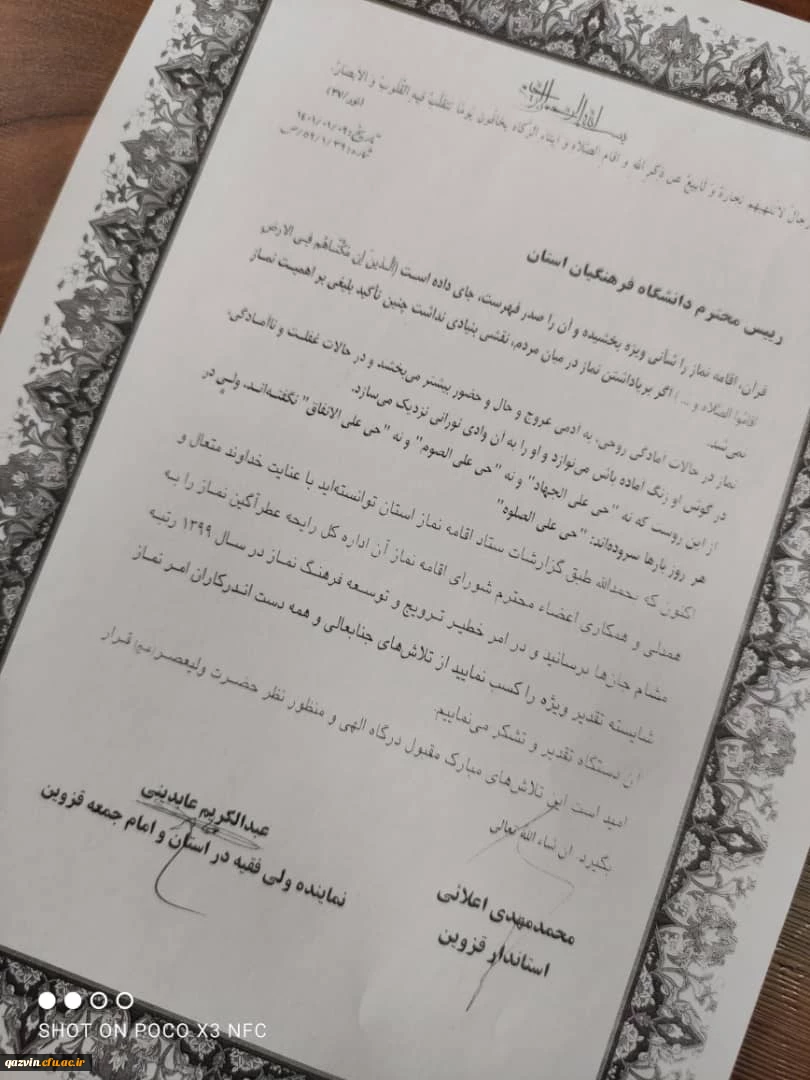 بسم الله الرحمن الرحیم
رجال لاتلهیهم تجارة و لابیع عن ذکر الله و اقام الصلاه و ایتاء الزکاه یخافون یوما تتقلب فیه القلوب و الابصار.
(نور/۳۷)
تاریخ:
شماره:
رییس محترم دانشگاه فرهنگیان استان
قرآن، اقامه نماز را شأنی ویژه بخشیده و آن را صدر فهرست، جای داده است (الذین ان مکناهم فی الارض
اقاموا الصلاه و ... ) اگر برپاداشتن نماز در میان مردم، نقشی بنیادی نداشت چنین تأکید بلیغی بر اهمیت نماز
نمی‌شد.
نماز در حالات آمادگی روحی، به آدمی عروج و حال و حضور بیشتر می‌بخشد و در حالات غفلت و ناآمادگی،
در گوش او زنگ آماده باش می‌نوازد و او را به آن وادی نورانی نزدیک می‌سازد.
از این روست که نه "حی علی الجهاد" و نه "حی علی الصوم" و نه "حی علی الانفاق" نگفته‌اند. ولی در
هر روز بارها سروده‌اند: "حی علی الصلوه"
اکنون که بحمدالله طبق گزارشات ستاد اقامه نماز استان توانسته‌اید با عنایت خداوند متعال و
همدلی و همکاری اعضاء محترم شورای اقامه نماز آن اداره کل رایحه عطرآگین نماز را به
مشام جان‌ها برسانید و در امر خطیر ترویج و توسعه فرهنگ نماز در سال ۱۳۹۹ رتبه
شایسته تقدیر ویژه را کسب نمایید از تلاش‌های جنابعالی و همه دست اندرکاران امر نماز
آن دستگاه تقدیر و تشکر می‌نماییم.
امید است این تلاش‌های مبارک مقبول درگاه الهی و منظور نظر حضرت ولیعصر(عج) قرار
بگیرد. ان شاء الله تعالی
عبدالکریم عابدینی
نماینده ولی فقیه در استان و امام جمعه قزوین
محمدمهدی اعلائی
استاندار قزوین
SHOT ON POCO X3 NFC
qazvin.cfu.ac.ir